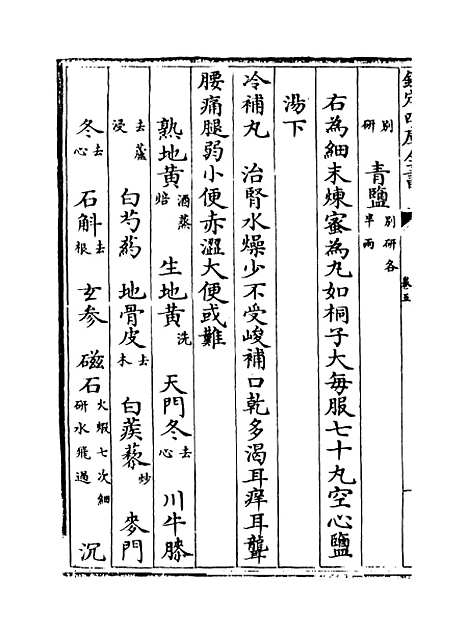 欽定四庫全書
卷五
別研 青鹽別研各半兩
右為細末煉蜜為丸如桐子大每服七十丸空心鹽
湯下
冷補丸 治腎水燥少不受峻補口乾多渴耳痒耳聾
腰痛腿弱小便赤澀大便或難
熟地黄酒蒸焙 生地黄洗 天門冬去心 川牛膝
去蘆浸 白芍藥 地骨皮去木 白蒺藜炒 麥門
冬去心 石斛去根 玄参 磁石火煅七次細研水飛過 沉